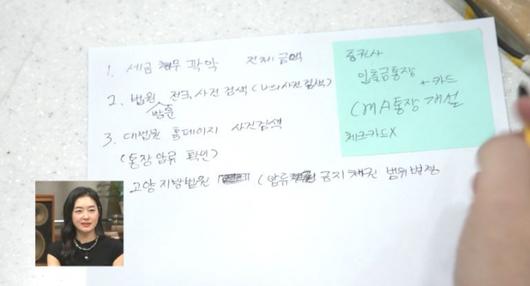 1. 세금 채무 파악 전체 금액
2. 법원 전국 사건 검색 (나의사건검색)
방문
3. 대법원 홈페이지 사건검색
(통장 압류 확인)
고양지방법원 (압류 금지 채권 범위변경
증권사
입출금통장
+카드
CMA통장 개설
체크카드X